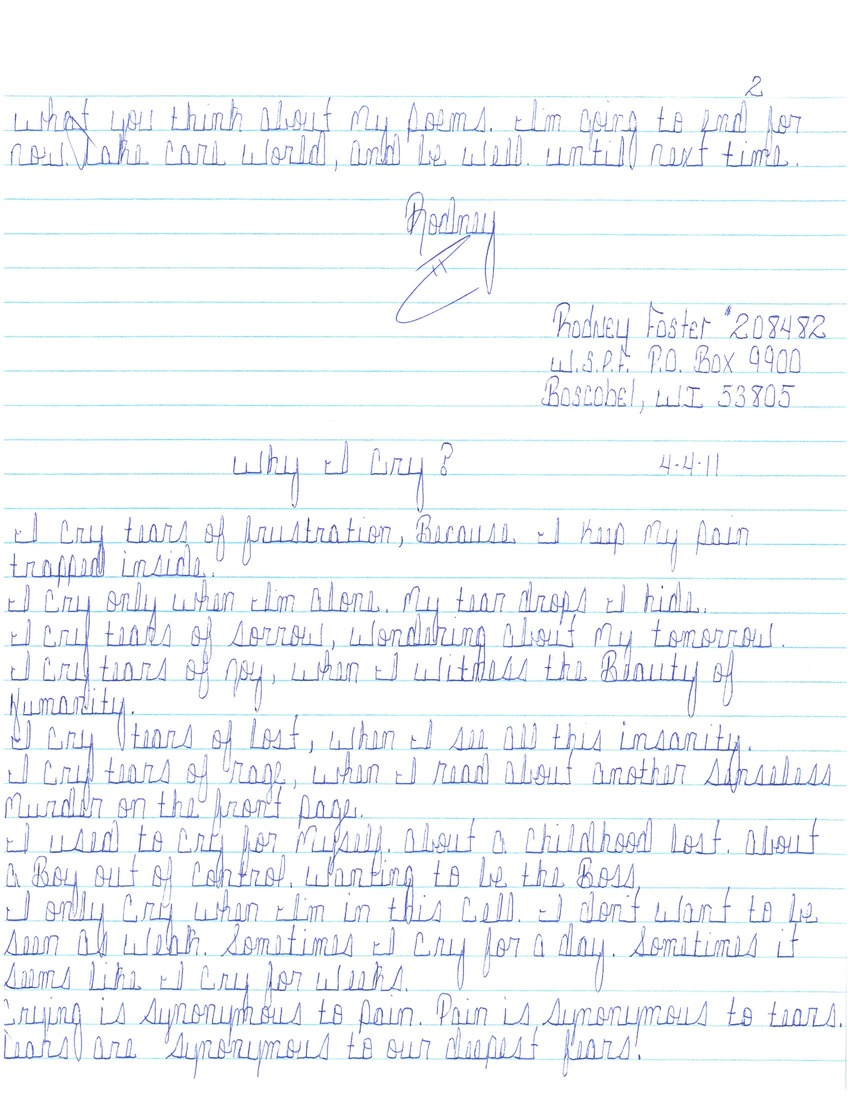 2
what you think about my poems. I'm going to end for
now. Take care world, and be well. until next time.
Rodney
Rodney Foster #208482
W.S.P.F. P.O. Box 9900
Boscobel, WI 53805
Why I Cry? 4-4-11
I cry tears of frustration, Because I keep my pain
trapped inside.
I cry only when I'm alone. My tear drops I hide.
I cry tears of sorrow, wondering about my tomorrow.
I cry tears of joy, when I witness the Beauty of
Humanity.
I cry tears of lost, when I see all this insanity.
I cry tears of rage, when I read about another senseless
Murder on the front page.
I used to cry for Myself. about a childhood lost. about
a Boy out of control. wanting to be the Boss
I only cry when I'm in this cell. I don't want to be
seen as weak. Sometimes I cry for a day. Sometimes it
seems like I cry for weeks.
Crying is synonymous to pain. Pain is synonymous to tears.
Tears are synonymous to our deepest fears!